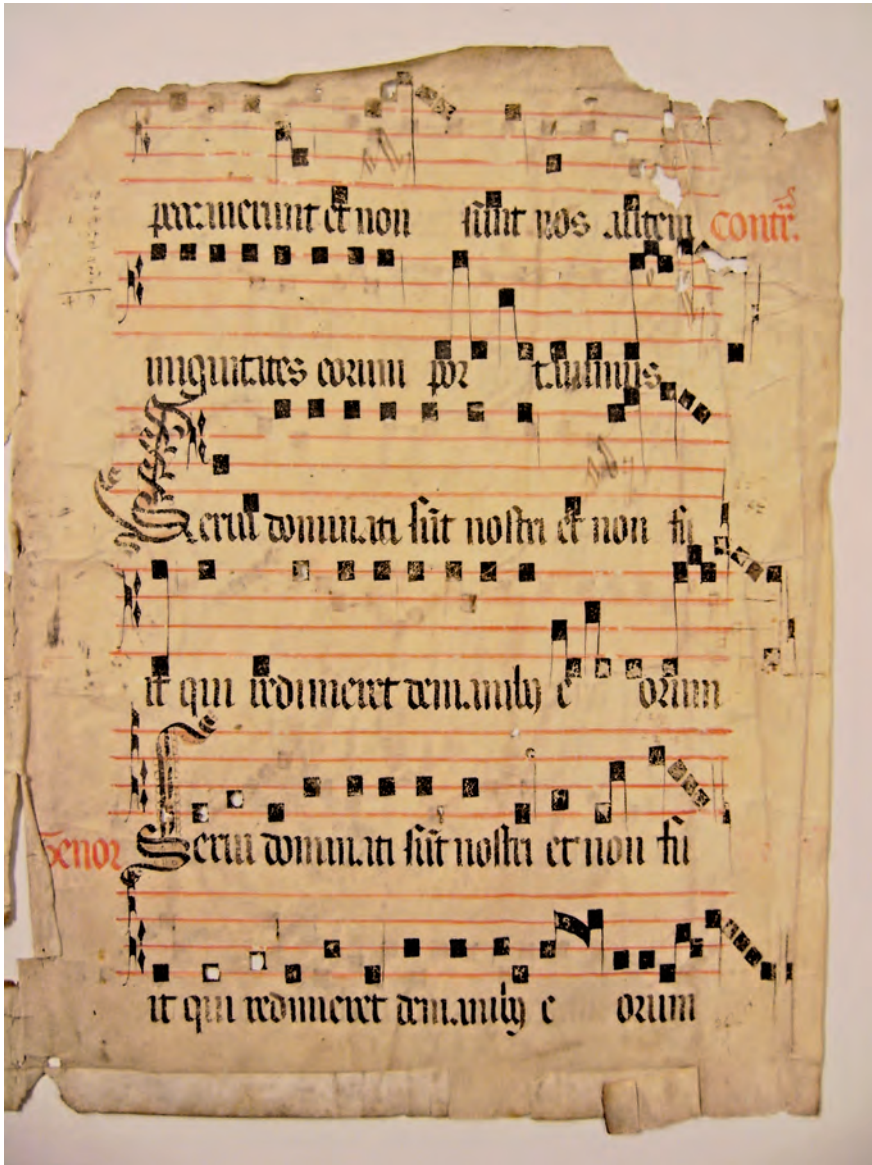 peccaverunt et non sunt nos autem contr.
iniquitates eorum por tavimus
Servi dominati sūt nostri et non fu
it qui redimeret de manu e orum
Tenor Servi dominati sūt nostri et non fu
it qui redimeret de manu e orum